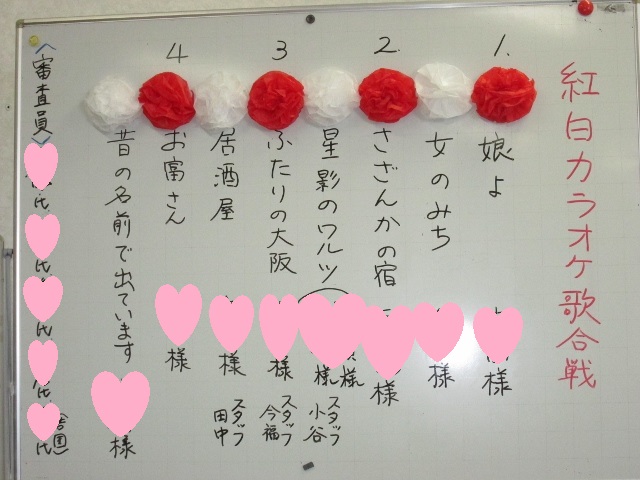 紅白カラオケ歌合戦
1.
娘よ
様
女のみち
様
2.
さざんかの宿
様
星影のワルツ
様
様
スタッフ
小谷
3
ふたりの大阪
様
スタッフ
今福
居酒屋
様
スタッフ
田中
4
お富さん
様
昔の名前で出ています
様
〈審査員〉
氏
氏
氏
氏
氏